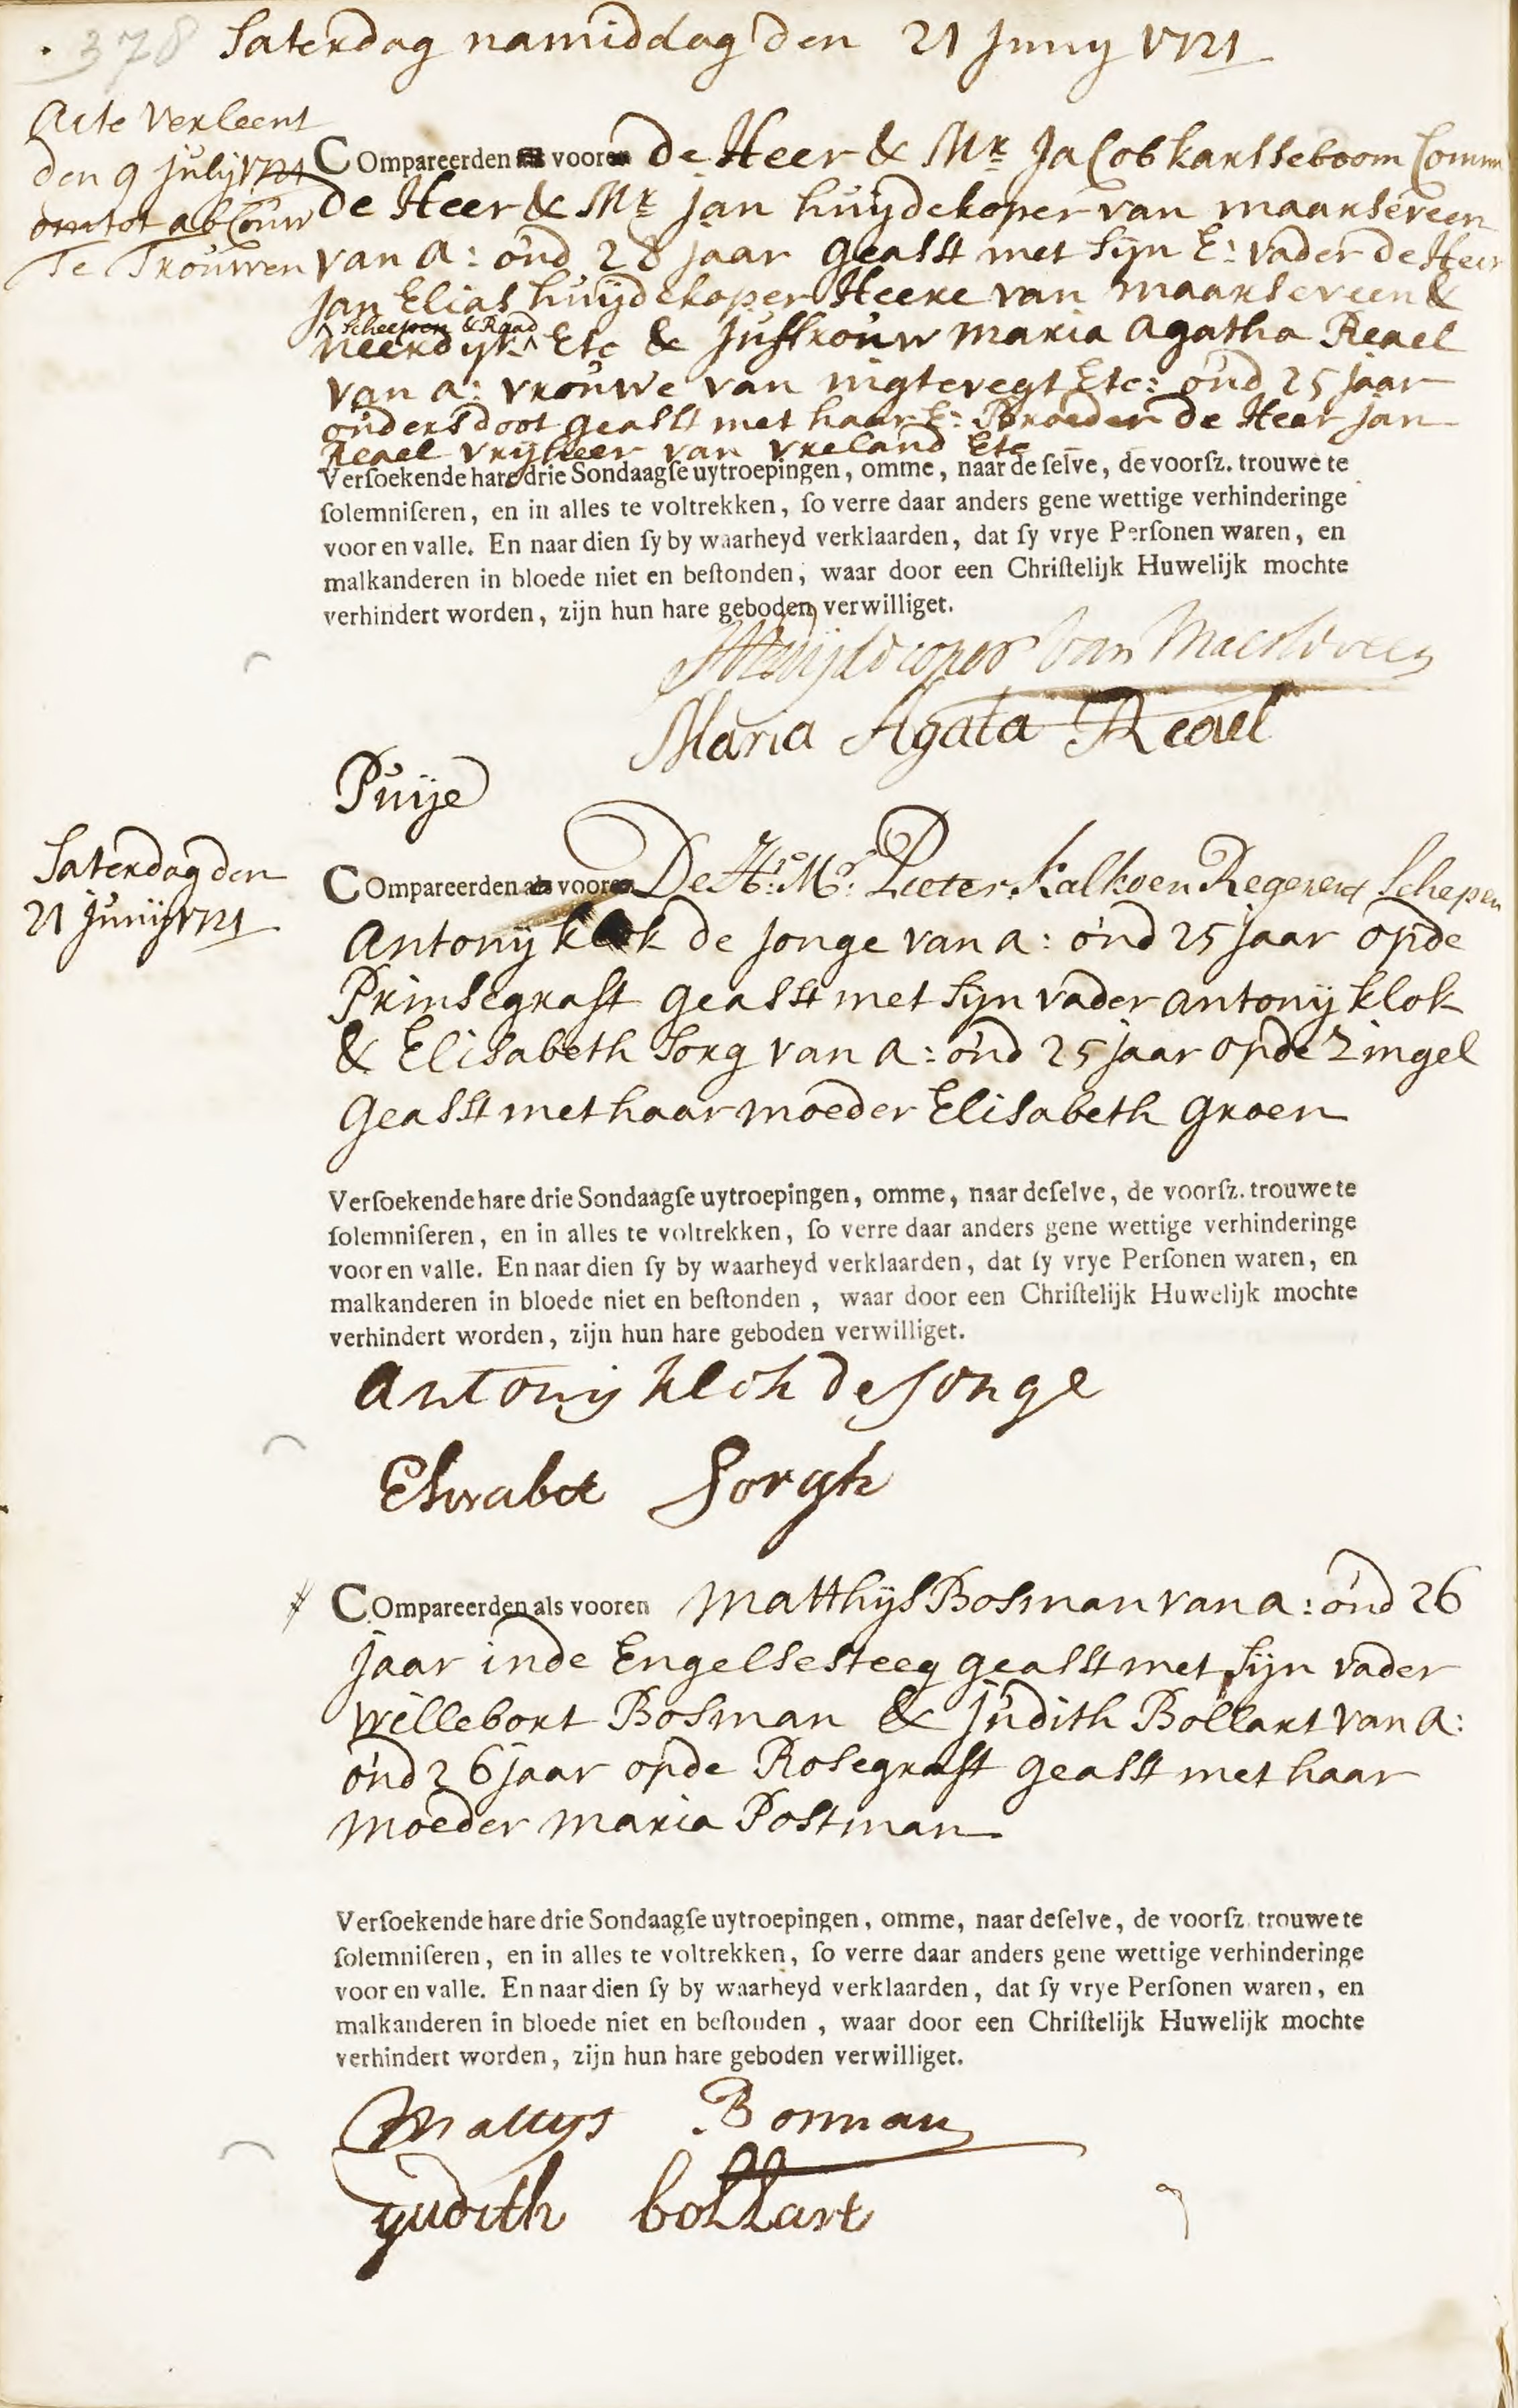 378 Saterdag namiddag den 21 Juny 1721
Acte Verleent
den 9 julij 1721
om tot abcouw
Te Trouwen
COmpareerden voor de Heer & Mr. Jacob karsseboom Comm
de Heer & Mr. jan huijdekoper van maarseveen
van A: oud 28 jaar geasst met sijn E: vader de Heer
jan Elias huijdekoper Heere van maarseveen &
neerdijk ^ Scheepen & Raad Etc & juffrouw maria agatha Reael
van a: vrouwe van nigtevegt Etc: oud 25 jaar
ouders doot geasst met haar E: Broeder de Heer jan
Reael vrijheer van vreland Etc
Verſoekende hare drie Sondaagſe uytroepingen, omme, naar de ſelve, de voorſz. trouwe te
ſolemniſeren, en in alles te voltrekken, ſo verre daar anders gene wettige verhinderinge
voor en valle. En naar dien ſy by waarheyd verklaarden, dat ſy vrye Perſonen waren, en
malkanderen in bloede niet en beſtonden, waar door een Chriſtelijk Huwelijk mochte
verhindert worden, zijn hun hare geboden verwilliget.
Huijdecoper van Maerseveen
Maria Agata Reael
Puije
Saterdag den
21 junij 1721
COmpareerden als vooren De Hr: Mr: Pieter Kalkoen Regerent Schepen
Antonij klok de jonge van a: oud 25 jaar op de
Prinsegraft geasst met sijn vader antonij klok
& Elisabeth Sorg van a: oud 25 jaar op de Zingel
geasst met haar moeder Elisabeth groen
Verſoekende hare drie Sondaagſe uytroepingen, omme, naar deſelve, de voorſz. trouwe te
ſolemniſeren, en in alles te voltrekken, ſo verre daar anders gene wettige verhinderinge
voor en valle. En naar dien ſy by waarheyd verklaarden, dat ſy vrye Perſonen waren, en
malkanderen in bloede niet en beſtonden, waar door een Chriſtelijk Huwelijk mochte
verhindert worden, zijn hun hare geboden verwilliget.
Antonij klok de Jonge
Elisabet Sorgh
COmpareerden als vooren Matthijs Bosman van a: oud 26
jaar inde Engelsesteeg geasst met sijn vader
Willebort Bosman & judith Bollart van A:
oud 26 jaar op de Rosegraft geasst met haar
moeder maria Postman
Verſoekende hare drie Sondaagſe uytroepingen, omme, naar deſelve, de voorſz. trouwe te
ſolemniſeren, en in alles te voltrekken, ſo verre daar anders gene wettige verhinderinge
voor en valle. En naar dien ſy by waarheyd verklaarden, dat ſy vrye Perſonen waren, en
malkanderen in bloede niet en beſtonden, waar door een Chriſtelijk Huwelijk mochte
verhindert worden, zijn hun hare geboden verwilliget.
Mattys Bosman
judith bollart